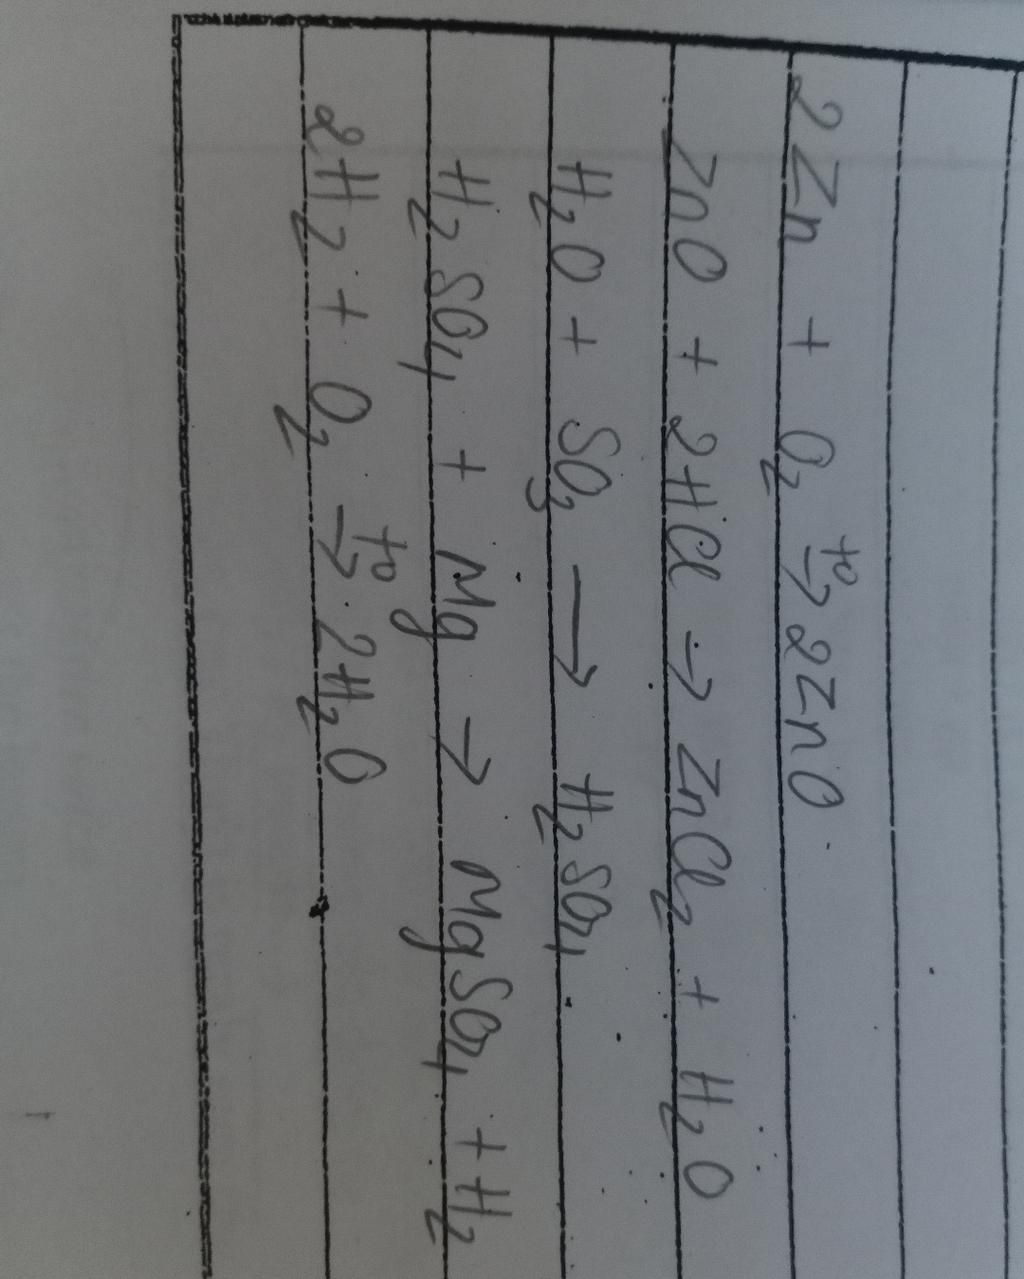 2Zn + O₂ →t⁰ 2ZnO
ZnO + 2HCl → ZnCl₂ + H₂O
H₂O + SO₃ → H₂SO₄
H₂SO₄ + Mg → MgSO₄ + H₂
2H₂ + O₂ →t⁰ 2H₂O